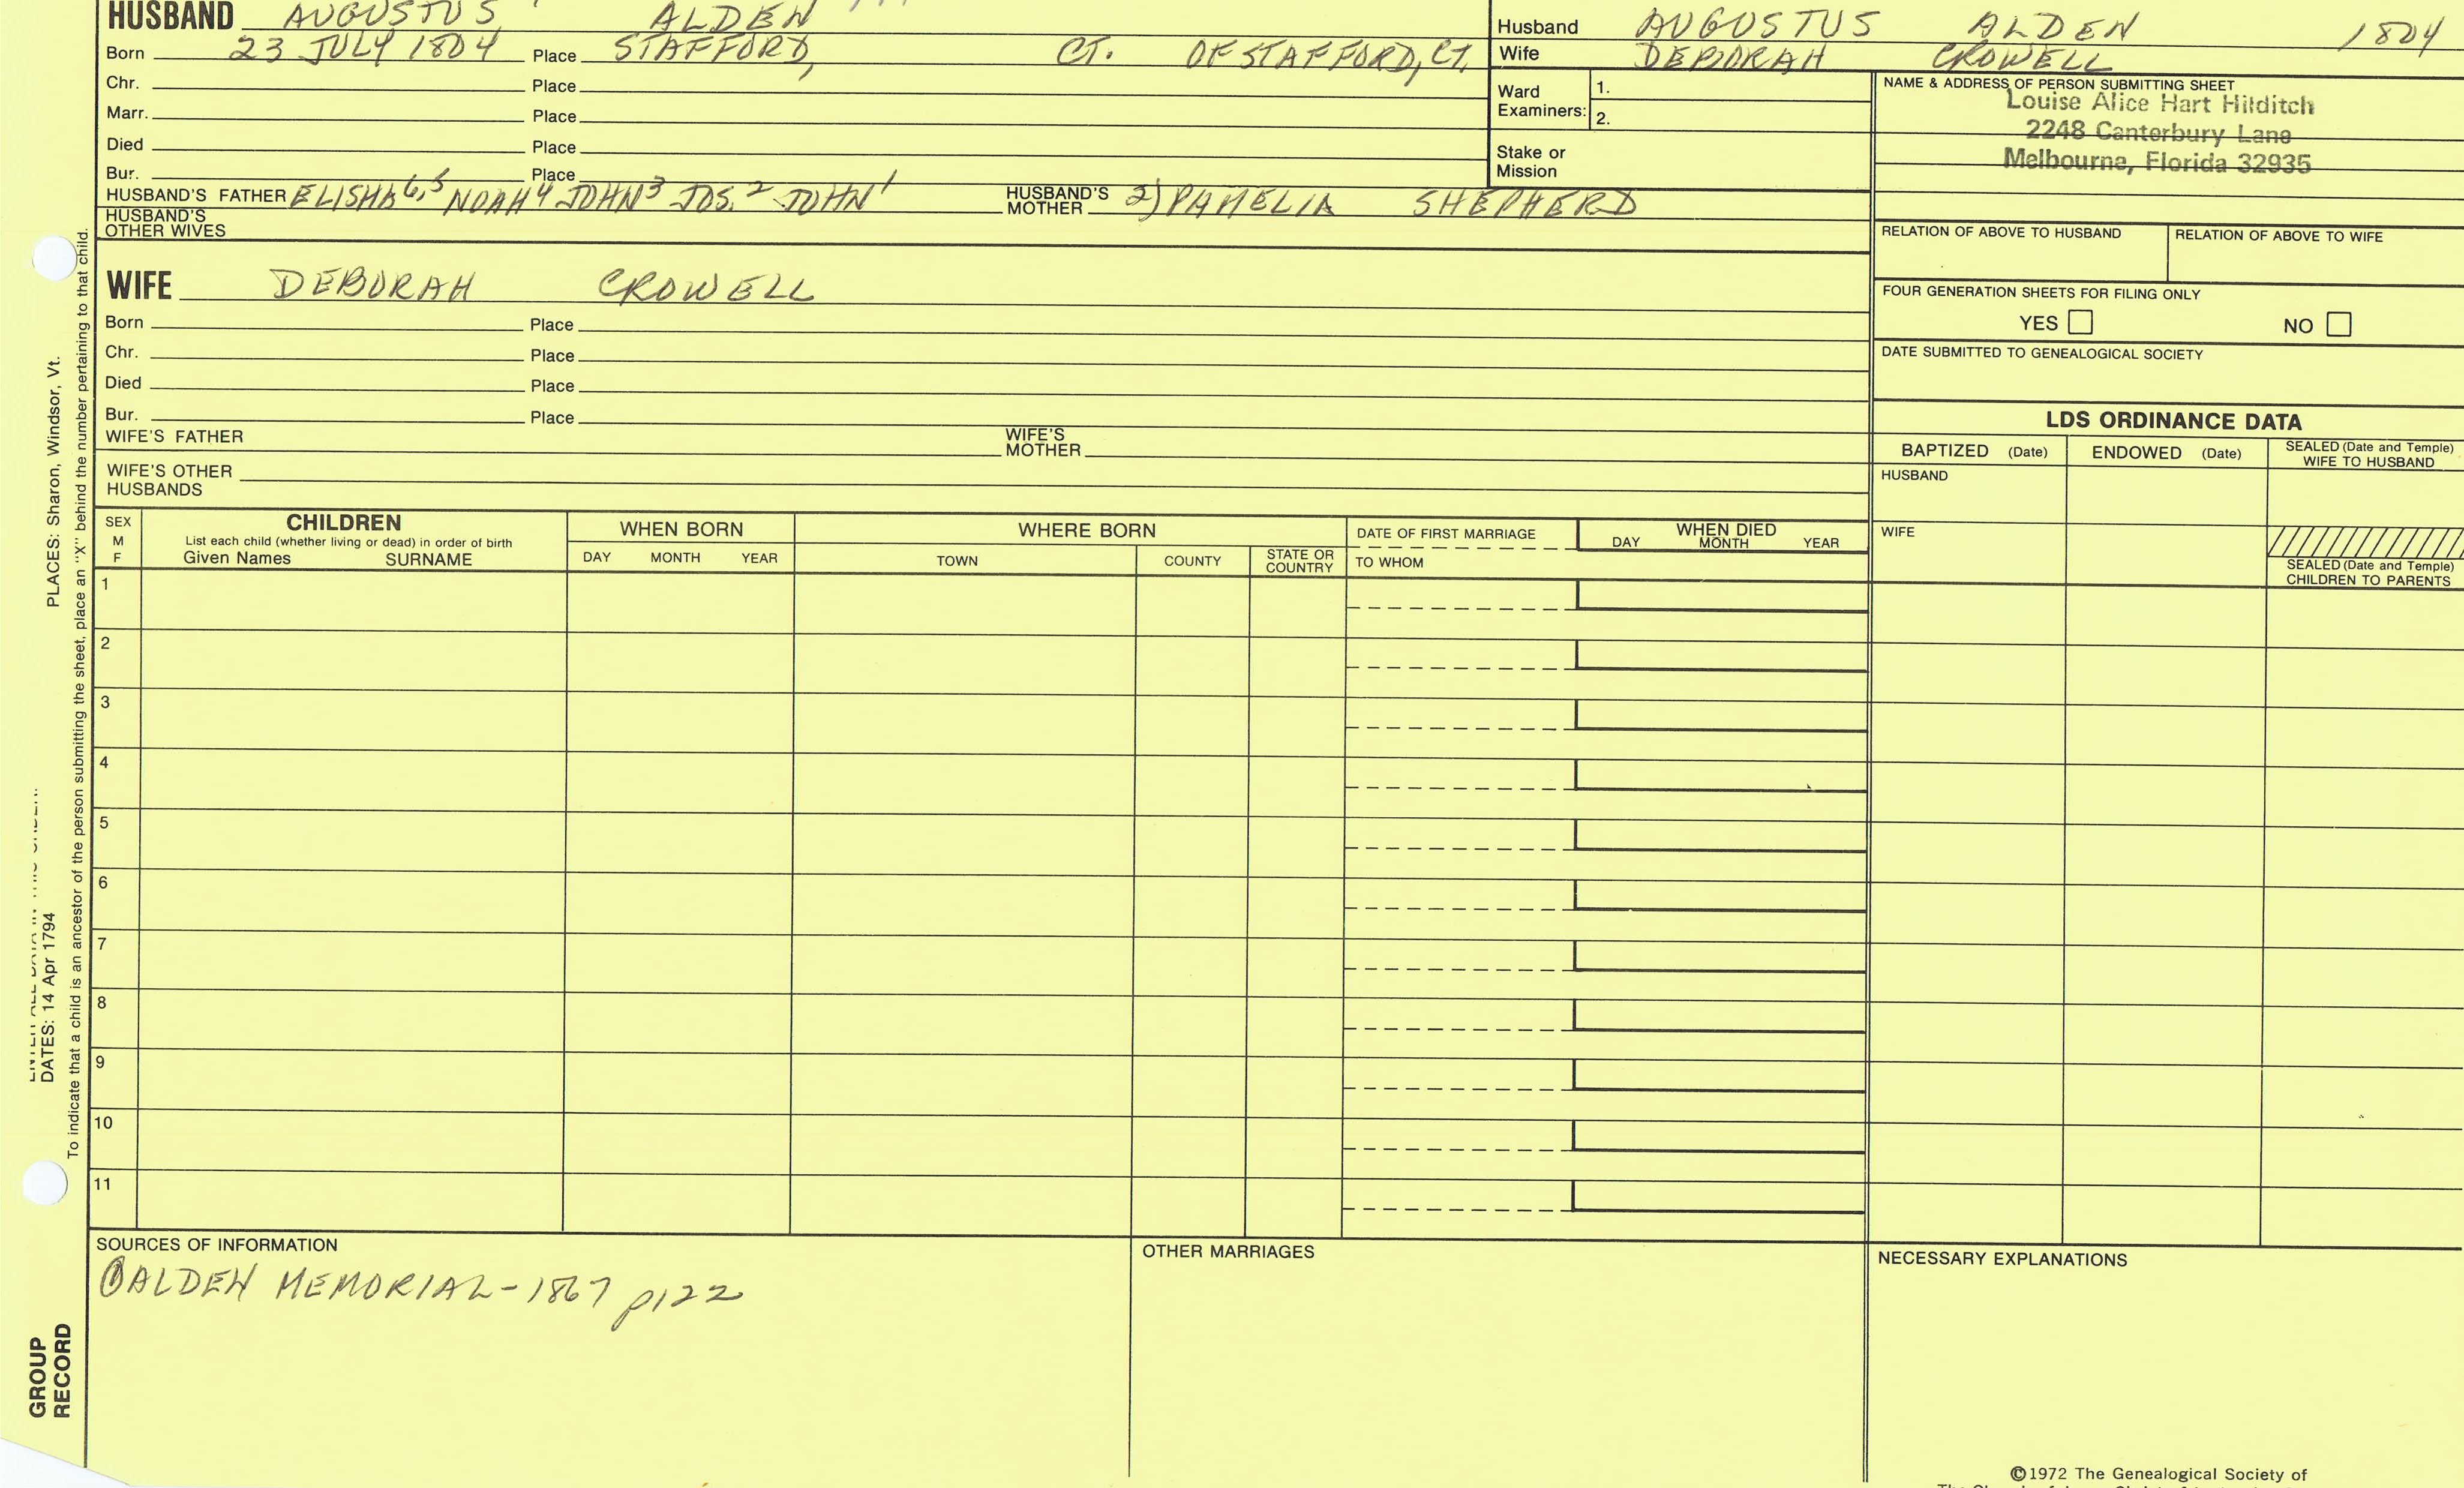 HUSBAND AUGUSTUS ALDEN
Born 23 JULY 1804 Place STAFFORD, CT. OF STAFFORD, CT.
Chr. Place
Marr. Place
Died Place
Bur. Place
HUSBAND'S FATHER ELISHA 6,5 NOAH 4 JOHN 3 JOS. 2 JOHN 1 HUSBAND'S MOTHER 2) PAMELIA SHEPHERD
HUSBAND'S OTHER WIVES
WIFE DEBORAH CROWELL
Born Place
Chr. Place
Died Place
Bur. Place
WIFE'S FATHER WIFE'S MOTHER
WIFE'S OTHER HUSBANDS
Husband AUGUSTUS ALDEN 1804
Wife DEBORAH CROWELL
Ward Examiners: 1.
2.
Stake or Mission
NAME & ADDRESS OF PERSON SUBMITTING SHEET
Louise Alice Hart Hilditch
2248 Canterbury Lane
Melbourne, Florida 32935
RELATION OF ABOVE TO HUSBAND RELATION OF ABOVE TO WIFE
FOUR GENERATION SHEETS FOR FILING ONLY
YES NO
DATE SUBMITTED TO GENEALOGICAL SOCIETY
LDS ORDINANCE DATA
BAPTIZED (Date) ENDOWED (Date) SEALED (Date and Temple) WIFE TO HUSBAND
HUSBAND
WIFE
SEALED (Date and Temple) CHILDREN TO PARENTS
SEX M F
CHILDREN
List each child (whether living or dead) in order of birth
Given Names SURNAME
WHEN BORN
DAY MONTH YEAR
WHERE BORN
TOWN COUNTY STATE OR COUNTRY
DATE OF FIRST MARRIAGE
TO WHOM
WHEN DIED
DAY MONTH YEAR
1
2
3
4
5
6
7
8
9
10
11
SOURCES OF INFORMATION
① ALDEN MEMORIAL - 1867 p122
OTHER MARRIAGES
NECESSARY EXPLANATIONS
©1972 The Genealogical Society of
PLACES: Sharon, Windsor, Vt.
DATES: 14 Apr 1794
To indicate that a child is an ancestor of the person submitting the sheet, place an "X" behind the number pertaining to that child.
GROUP
RECORD